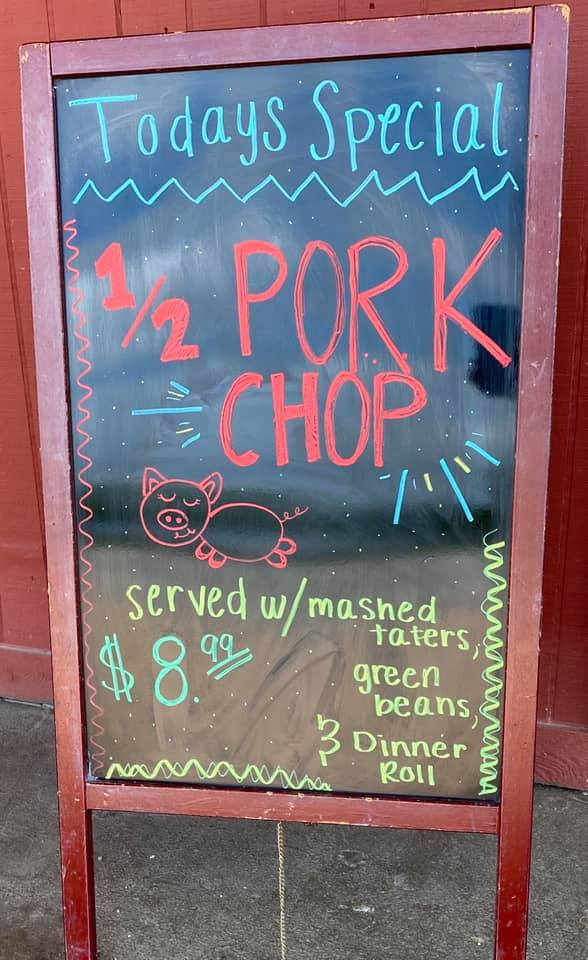 Todays Special
1/2 PORK
CHOP
served w/mashed
taters,
$8.99
green
beans,
& Dinner
Roll